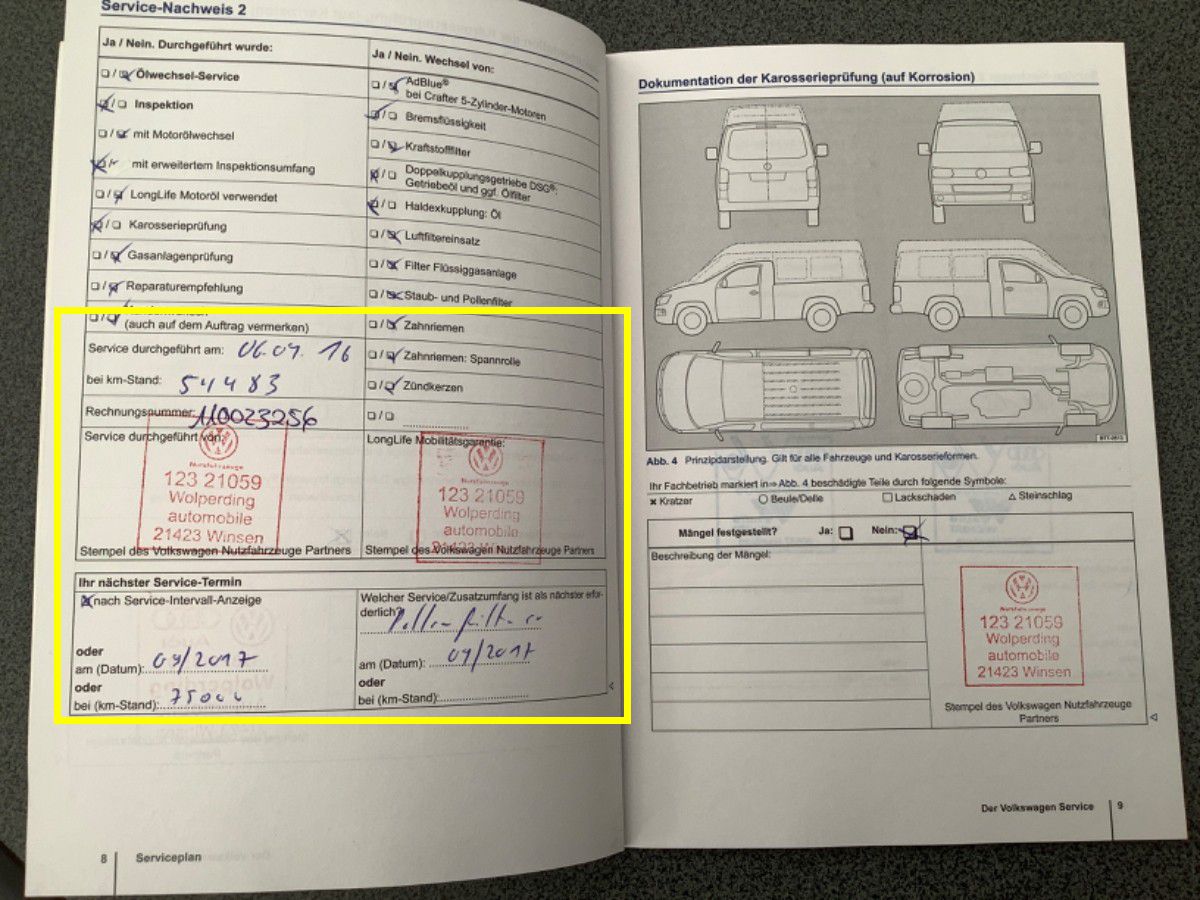 Service-Nachweis 2
Ja / Nein. Durchgeführt wurde:
Ölwechsel-Service
Inspektion
mit Motorölwechsel
mit erweitertem Inspektionsumfang
LongLife Motoröl verwendet
Karosserieprüfung
Gasanlagenprüfung
Reparaturempfehlung
(auch auf dem Auftrag vermerken)
Service durchgeführt am: 06.09. 16
bei km-Stand: 54483
Rechnungsnummer: 110023256
Service durchgeführt von:
Nutzfahrzeuge
123 21059
Wolperding
automobile
21423 Winsen
Stempel des Volkswagen Nutzfahrzeuge Partners
Ja / Nein. Wechsel von:
AdBlue®
bei Crafter 5-Zylinder-Motoren
Bremsflüssigkeit
Kraftstofffilter
Doppelkupplungsgetriebe DSG®:
Getriebeöl und ggf. Ölfilter
Haldexkupplung: Öl
Luftfiltereinsatz
Filter Flüssiggasanlage
Staub- und Pollenfilter
Zahnriemen
Zahnriemen: Spannrolle
Zündkerzen
LongLife Mobilitätsgarantie:
Nutzfahrzeuge
123 21059
Wolperding
automobile
21423 Winsen
Stempel des Volkswagen Nutzfahrzeuge Partners
Ihr nächster Service-Termin
nach Service-Intervall-Anzeige
oder
am (Datum): 09/2017
oder
bei (km-Stand): 75000
Welcher Service/Zusatzumfang ist als nächster erfor-
derlich? Pollenfilter
am (Datum): 09/2017
oder
bei (km-Stand):
8 Serviceplan
Dokumentation der Karosserieprüfung (auf Korrosion)
Abb. 4 Prinzipdarstellung. Gilt für alle Fahrzeuge und Karosserieformen.
Ihr Fachbetrieb markiert in ⇒ Abb. 4 beschädigte Teile durch folgende Symbole:
× Kratzer ○ Beule/Delle □ Lackschaden △ Steinschlag
Mängel festgestellt? Ja: Nein:
Beschreibung der Mängel:
Nutzfahrzeuge
123 21059
Wolperding
automobile
21423 Winsen
Stempel des Volkswagen Nutzfahrzeuge
Partners
Der Volkswagen Service 9